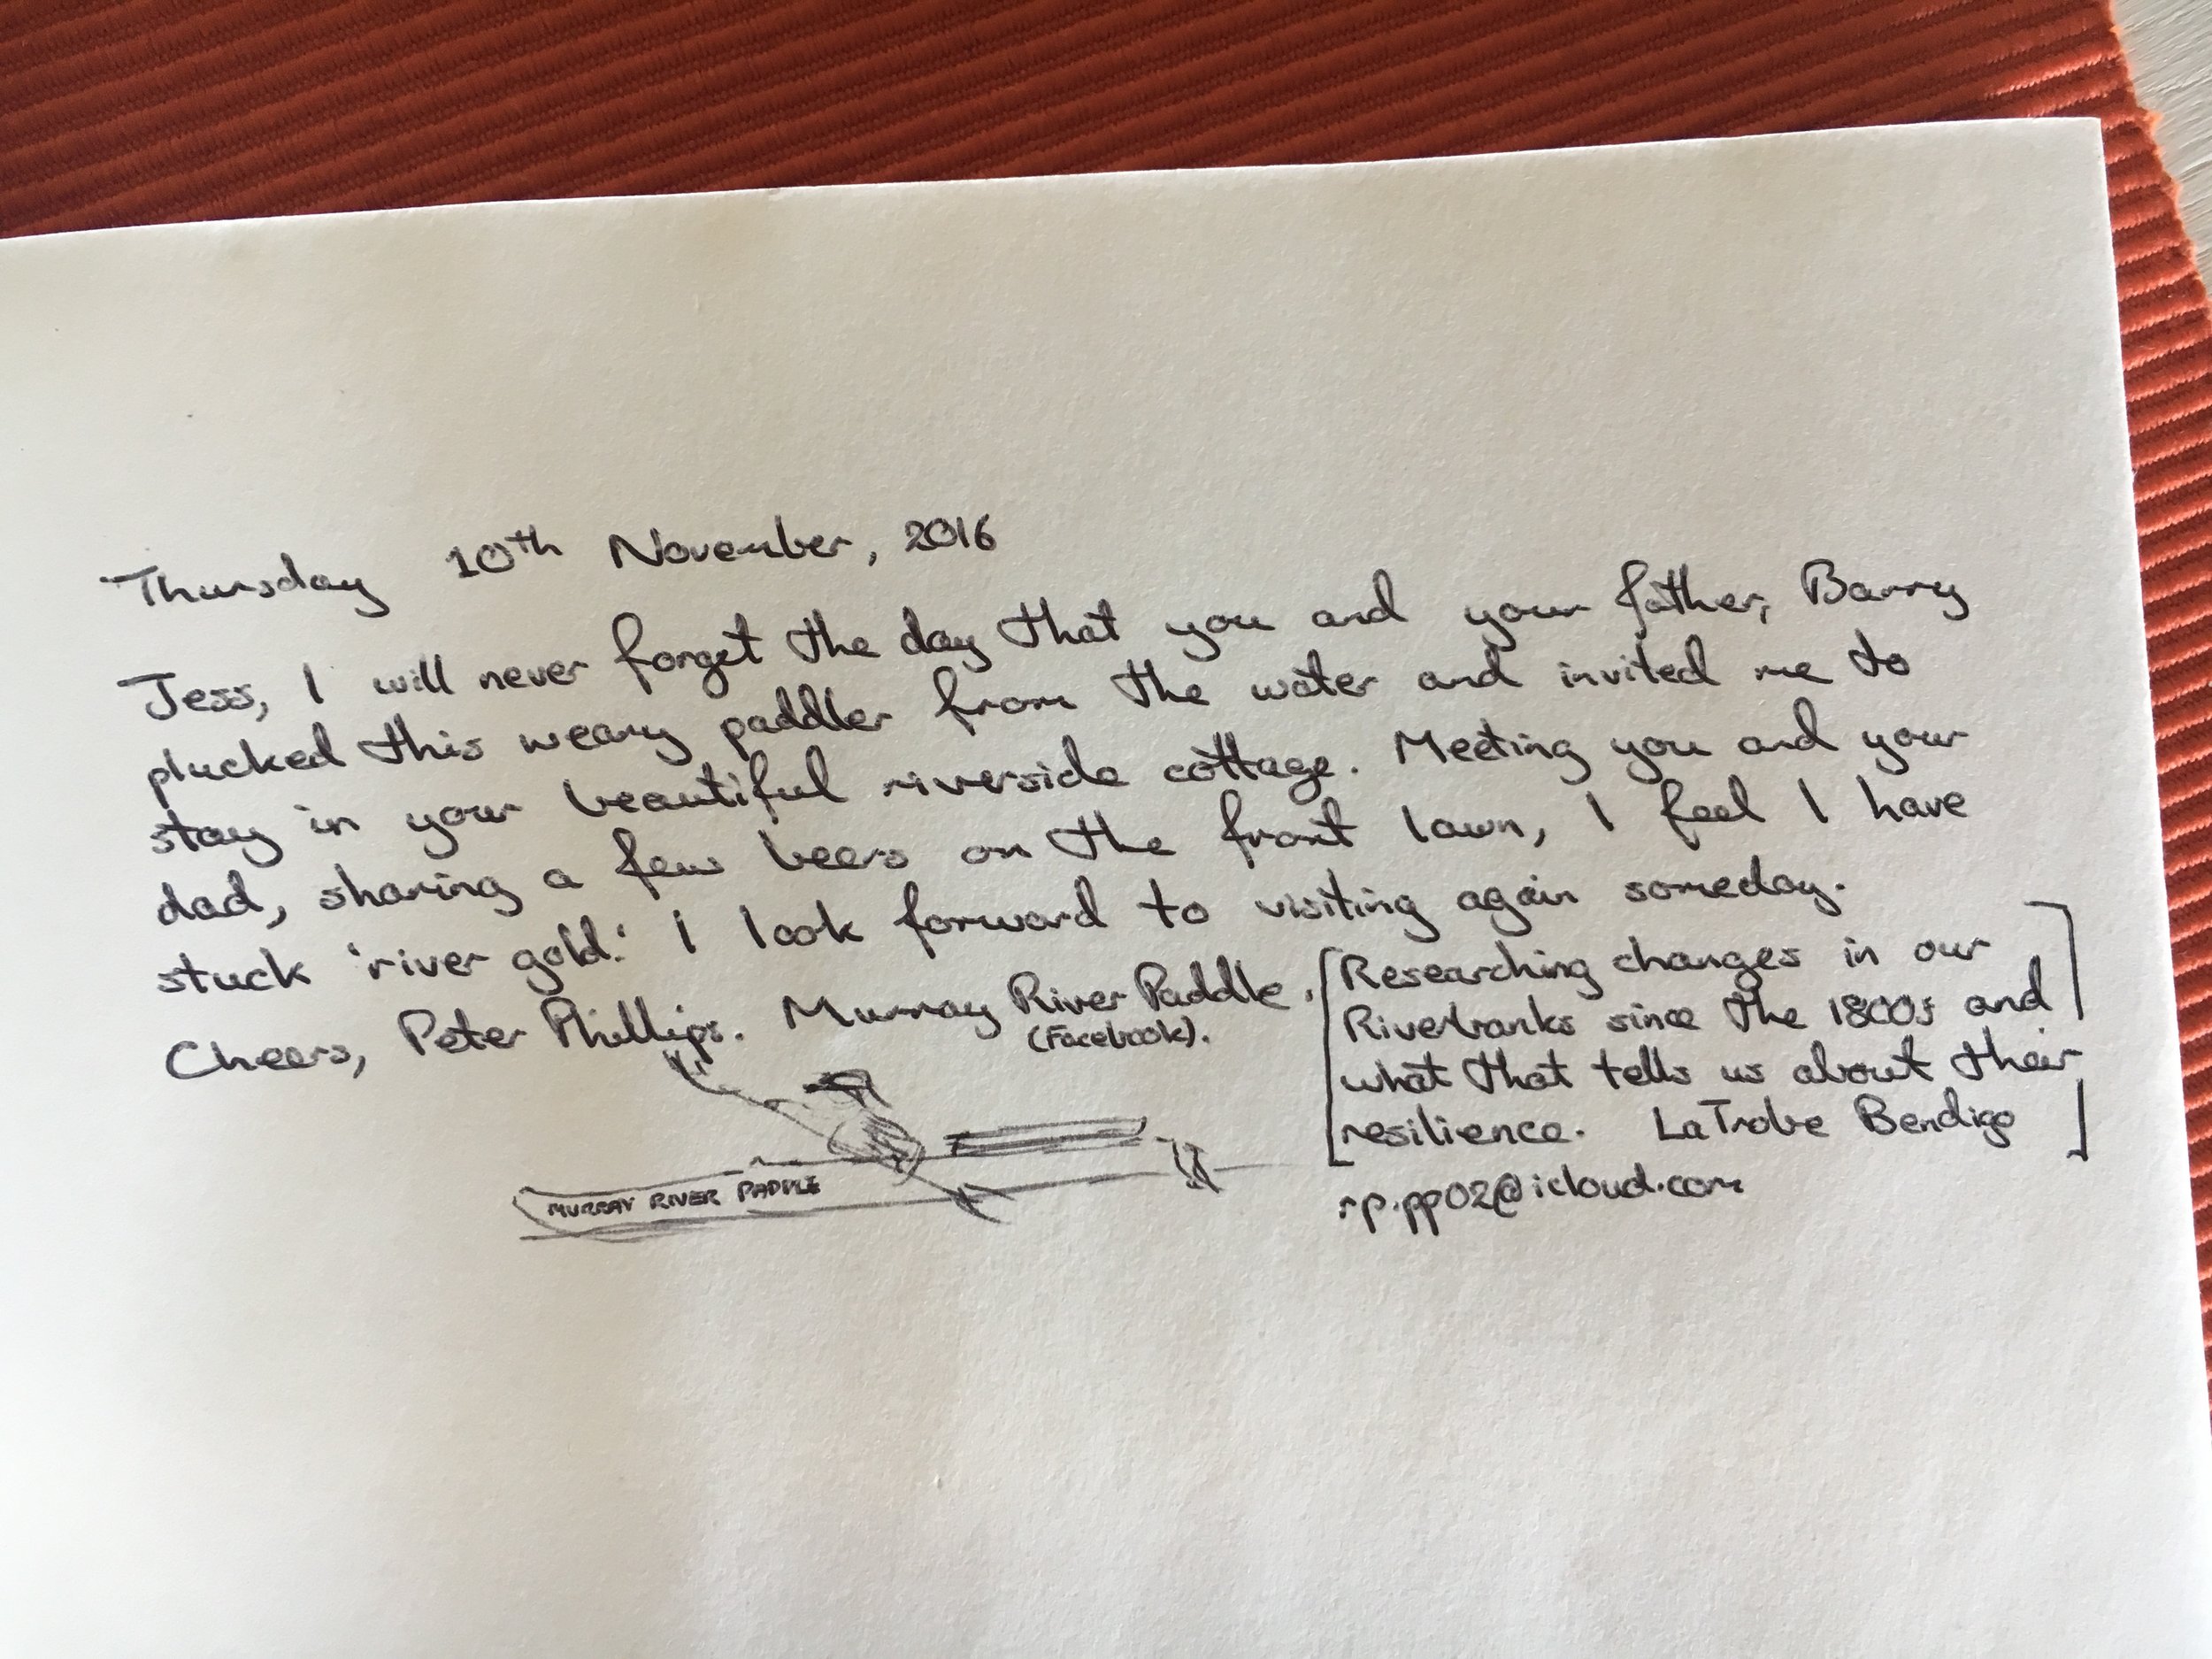 Thursday 10th November, 2016
Jess, I will never forget the day that you and your father, Barry
plucked this weary paddler from the water and invited me to
stay in your beautiful riverside cottage. Meeting you and your
dad, sharing a few beers on the front lawn, I feel I have
stuck 'river gold.' I look forward to visiting again someday.
Cheers, Peter Phillips. Murray River Paddle,
(Facebook).
[Researching changes in our
Riverbanks since the 1800s and
what that tells us about their
resilience. LaTrobe Bendigo]
rp.pp02@icloud.com
MURRAY RIVER PADDLE